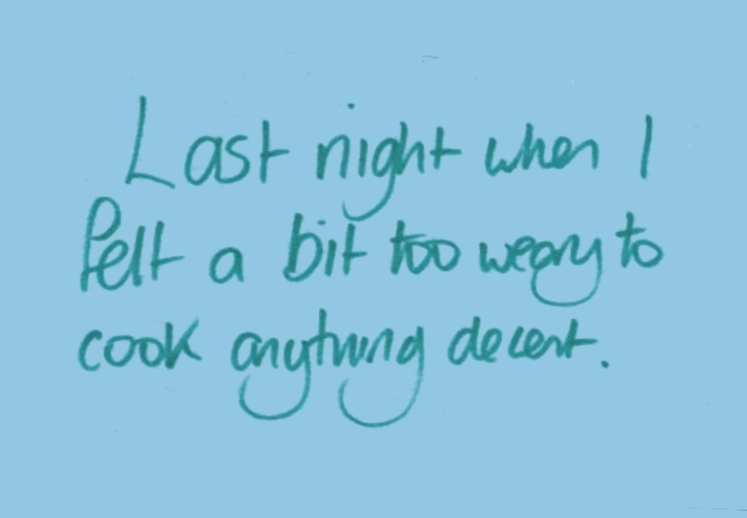 Last night when I
felt a bit too weary to
cook anything decent.